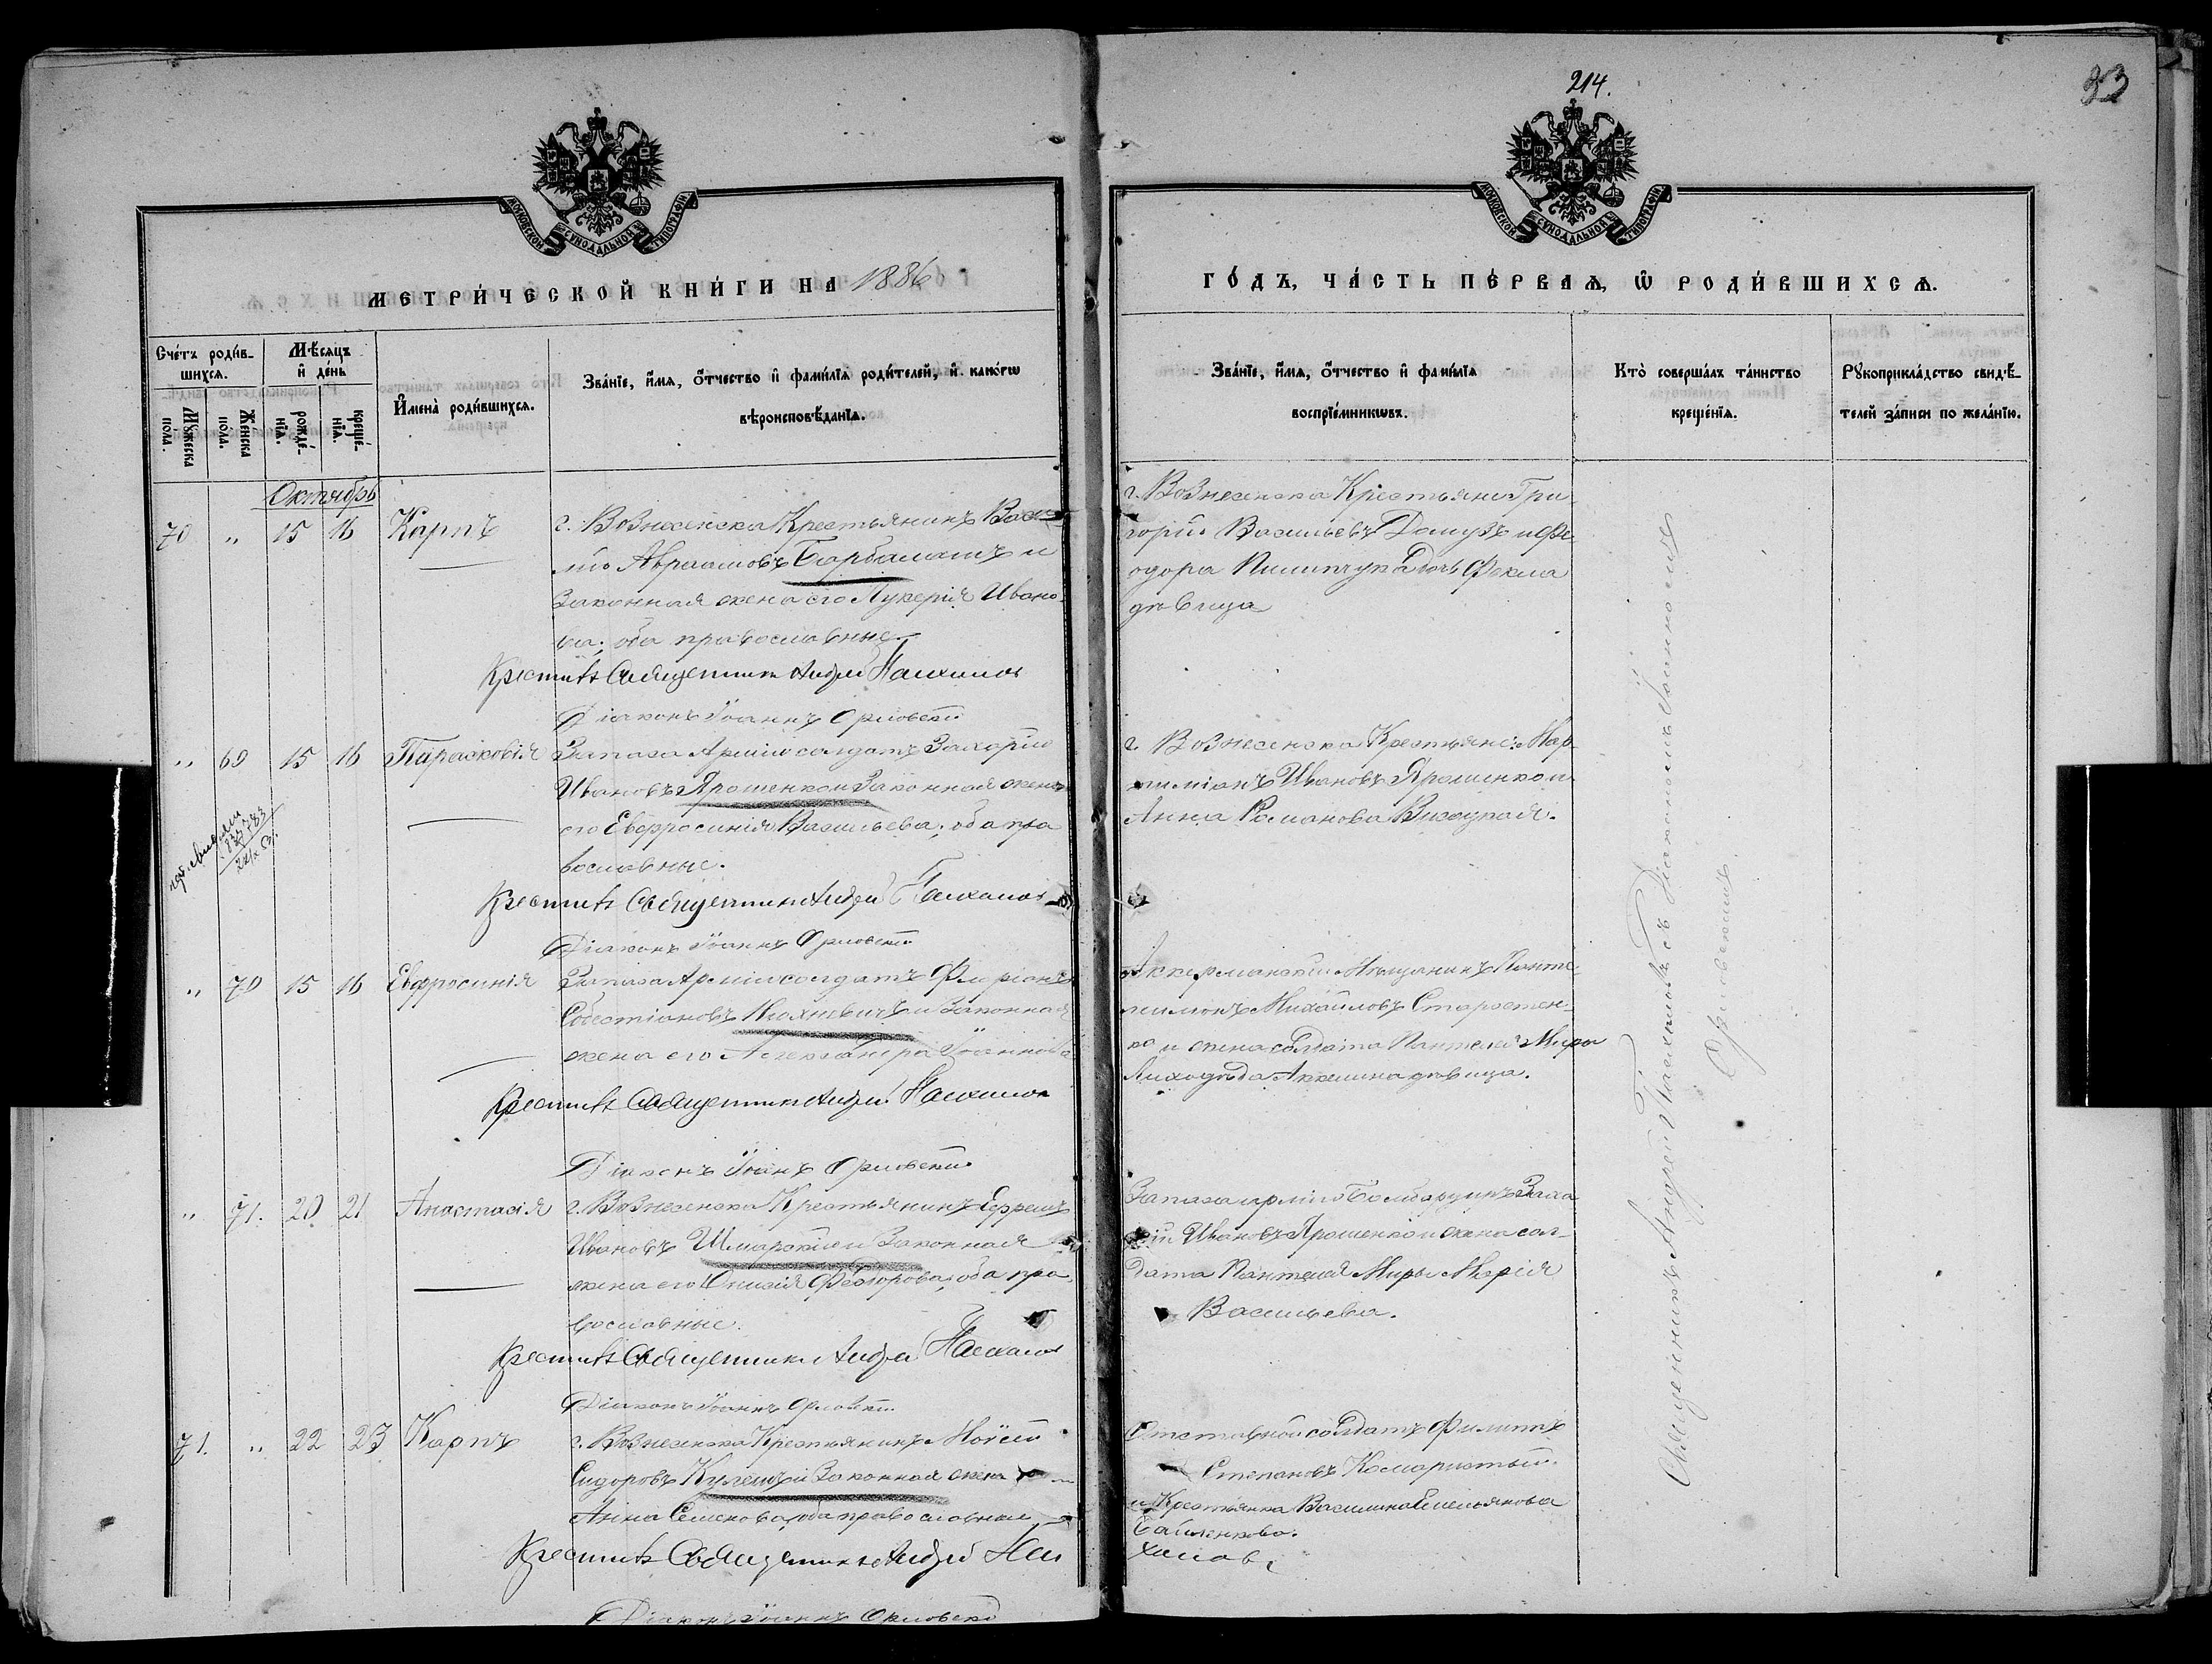 214.
33
МОСКОВСКОЙ СѴНОДАЛЬНОЙ ТИПОГРАФІИ
МОСКОВСКОЙ СѴНОДАЛЬНОЙ ТИПОГРАФІИ
МЕТРИ́ЧЕСКОЙ КНИ́ГИ НА 1886
ГО́ДЪ, ЧА́СТЬ ПЕ́РВАѦ, Ѡ РОДИ́ВШИХСѦ.
Счётъ роди́в-
шихсѧ.
Мꙋжеска по́ла.
Женска по́ла.
Мѣ́сѧцъ
и҆ де́нь
рожде́-
нїѧ.
креще́-
нїѧ.
И҆мена̀ роди́вшихсѧ.
Зва́нїе, и҆́мѧ, ѻ҆́тчество и҆ фами́лїѧ роди́телей, и҆ како́гѡ
вѣроисповѣ́данїѧ.
Зва́нїе, и҆́мѧ, ѻ҆́тчество и҆ фами́лїѧ
воспрїе́мникѡвъ.
Кто̀ соверша́лъ та́инство
креще́нїѧ.
Рꙋкоприкла́дство свидѣ́-
телей за́писи по жела́нїю.
Октябрь
70 „ 15 16 Карпъ
г. Вознесенска Крестьянинъ Васи-
лій Авраамовъ Барбаматъ и
законная жена его Лукерія Ивано-
ва; оба православные.
Крестилъ Священникъ Андрей Пасхалов
Діаконъ Іоаннъ Орловскій
г. Вознесенска Крестьяне Гри-
горій Васильевъ Домузъ и Фе-
одора Пилипчука дочь Фекла
дѣвица
„ 69 15 16 Парасковія
Запаса Арміи солдатъ Захарій
Ивановъ Ярошенко и законная жена
его Евфросинія Васильева; оба пра
вославные.
Крестилъ Священникъ Андрей Пасхалов
Діаконъ Іоаннъ Орловскій
г. Вознесенска Крестьяне: Мар-
тиміанъ Ивановъ Ярошенко и
Анна Романова Висоцкая.
„ 70 15 16 Евфросинія
Запаса Арміи солдатъ Флоріанъ
Собестіановъ Махневичъ и законная
жена его Александра Іоаннова
Крестилъ Священникъ Андрей Пасхалов
Діаконъ Іоанъ Орловскій
Аккерманскій Мѣщанинъ Панте-
леимонъ Михайловъ Старостен-
ко и жена солдата Пантелея Миры
Лиходѣда Акилина дѣвица.
„ 71. 20 21 Анастасія
г. Вознесенска Крестьянинъ Ефремъ
Ивановъ Шмарскій и законная
жена его Онисія Феодорова; оба пра
вославные.
Крестилъ Священникъ Андрей Пасхалов
Діаконъ Іоаннъ Орловскій
Запаса арміи Бомбардиръ Заха
рій Ивановъ Ярошенко и жена сол-
дата Пантелея Миры Марія
Васильева.
71. „ 22 23 Карпъ
г. Вознесенска Крестьянинъ Моѵсей
Сидоровъ Кулешъ и законная жена
Анна Семенова, оба православные
Крестилъ Священникъ Андрей Пас
Діаконъ Іоаннъ Орловскій
Отставной солдатъ Филиппъ
Степановъ Комаристый.
и Крестьянка Василина Емельянова
халовъ
Священникъ Андрей Пасхаловъ съ Діакономъ Іоанномъ
Орловскимъ.